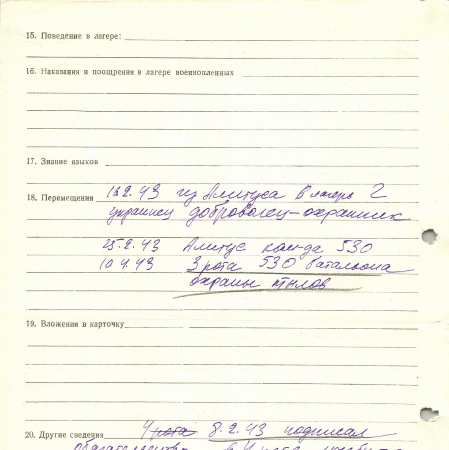 15. Поведение в лагере:
16. Наказания и поощрения в лагере военнопленных
17. Знание языков
18. Перемещения 16.2.43 из Алитуса в лагерь 2
украинец доброволец-охранник
25.2.43 Алитус ком-да 530
10.4.43 3 рота 530 батальона
охраны тылов
19. Вложения в карточку
20. Другие сведения 4 рота 8.2.43 подписал